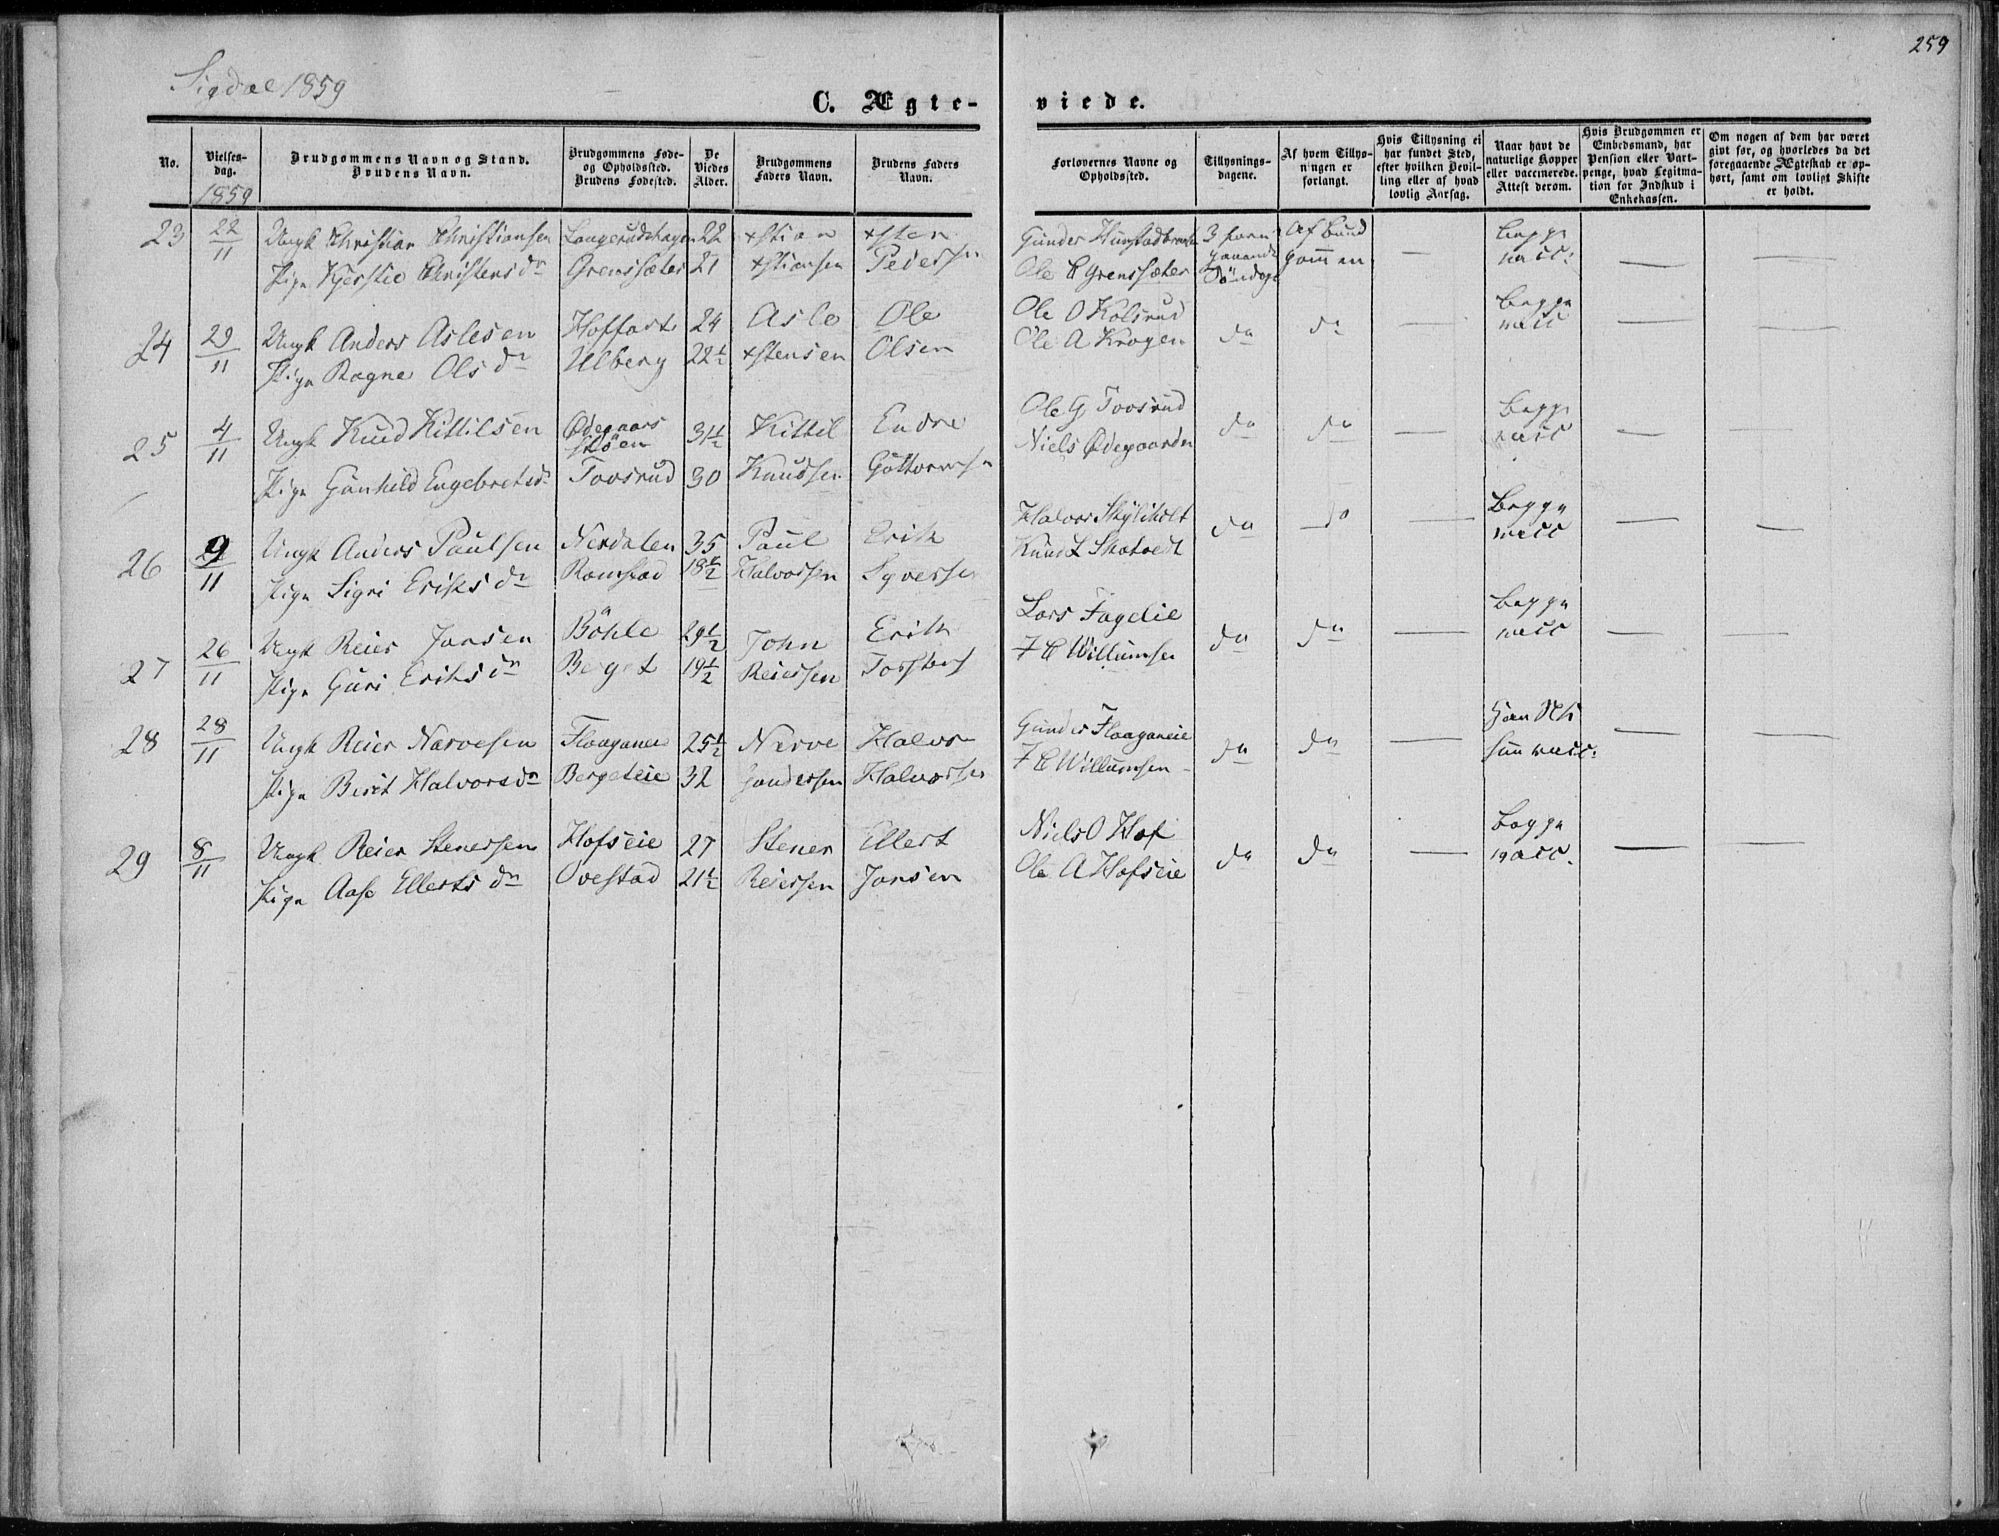 259
Sigdal 1859
C. Ægte-
viede.
No.
Vielses-
dag.
Brudgommens Navn og Stand.
Brudens Navn.
Brudgommens Føde-
og Opholdssted.
Brudens Fødested.
De
Viedes
Alder.
Brudgommens
Faders Navn.
Brudens Faders
Navn.
Forlovernes Navne og
Opholdssted.
Tillysnings-
dagene.
Af hvem Tillys-
ningen er
forlangt.
Hvis Tillysning ei
har fundet Sted,
efter hvilken Bevil-
ling eller af hvad
lovlig Aarsag.
Naar havt de
naturlige Kopper
eller vaccinerede.
Attest derom.
Hvis Brudgommen er
Embedsmand, har
Pension eller Vart-
penge, hvad Legitima-
tion for Indskud i
Enkekassen.
Om nogen af dem har været
givt før, og hvorledes da det
foregaaende Ægteskab er op-
hørt, samt om lovligt Skifte
er holdt.
1859
23 22/11 Ungk Christian Christiansen Langerudshagen 22 xstian xsten Gunder 3 foreg Af Brud Begge
Pige Kjerstie Christensdr Grensæter 21 xstiansen Pedersen Ole C Grensæter gaaende Søndage gommen — vacc: — —
24 29/11 Ungk Anders Aslesen Hoffart 24 Asle Ole Ole O Kolsrud do do — Begge vacc — —
Pige Ragne Olsdr Ulberg 22½ xstensen Olsen Ole A Krogen
25 4/11 Ungk Knud Kittilsen Ødegaards støen 31½ Kittil Endre Ole G Toosrud do do — Begge vacc — —
Pige Gunhild Engebretsdr Toosrud 30 Knudsen Guttormsen Niels Ødegaarden
26 9/11 Ungk Anders Paulsen Nerdalen 35 Paul Erik Halvor Skyliholt do do — Begge vacc — —
Pige Sigri Eriksdr Ramstad 18½ Halvorsen Syversen Knud L Skatvedt
27 26/11 Ungk Reier Jonsen Bøhle 29½ John Erik Lars Fagelie do do — Begge vacc — —
Pige Guri Eriksdr Berget 19½ Reiersen Torstens F C Willumsen
28 28/11 Ungk Reier Narvesen Flaaganeie 25½ Nerve Halvor Gunder Flaaganeie do do — vacc: — —
Pige Berit Halvorsdr Bergeteie 32 Gundersen Halvorsen F C Willumsen
29 8/11 Ungk Reier Stenersen Hofseie 27 Stener Ellert Niels O Hof do do — Begge vacc. — —
Pige Aase Ellertsdr Ovestad 21½ Reiersen Jonsen Ole A Hofseie